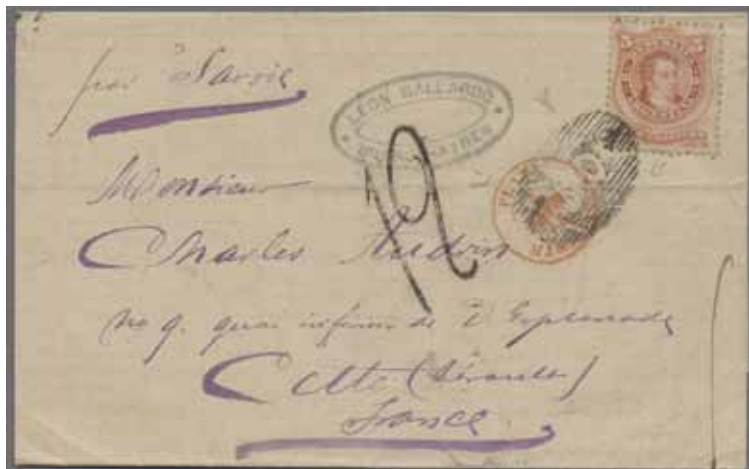 par Savoie
LÉON GALLARDO
BUENOS AIRES
5 5
12
Monsieur
Charles
No 9. quai inférieur de l'Esplanade
Cette (Hérault)
France